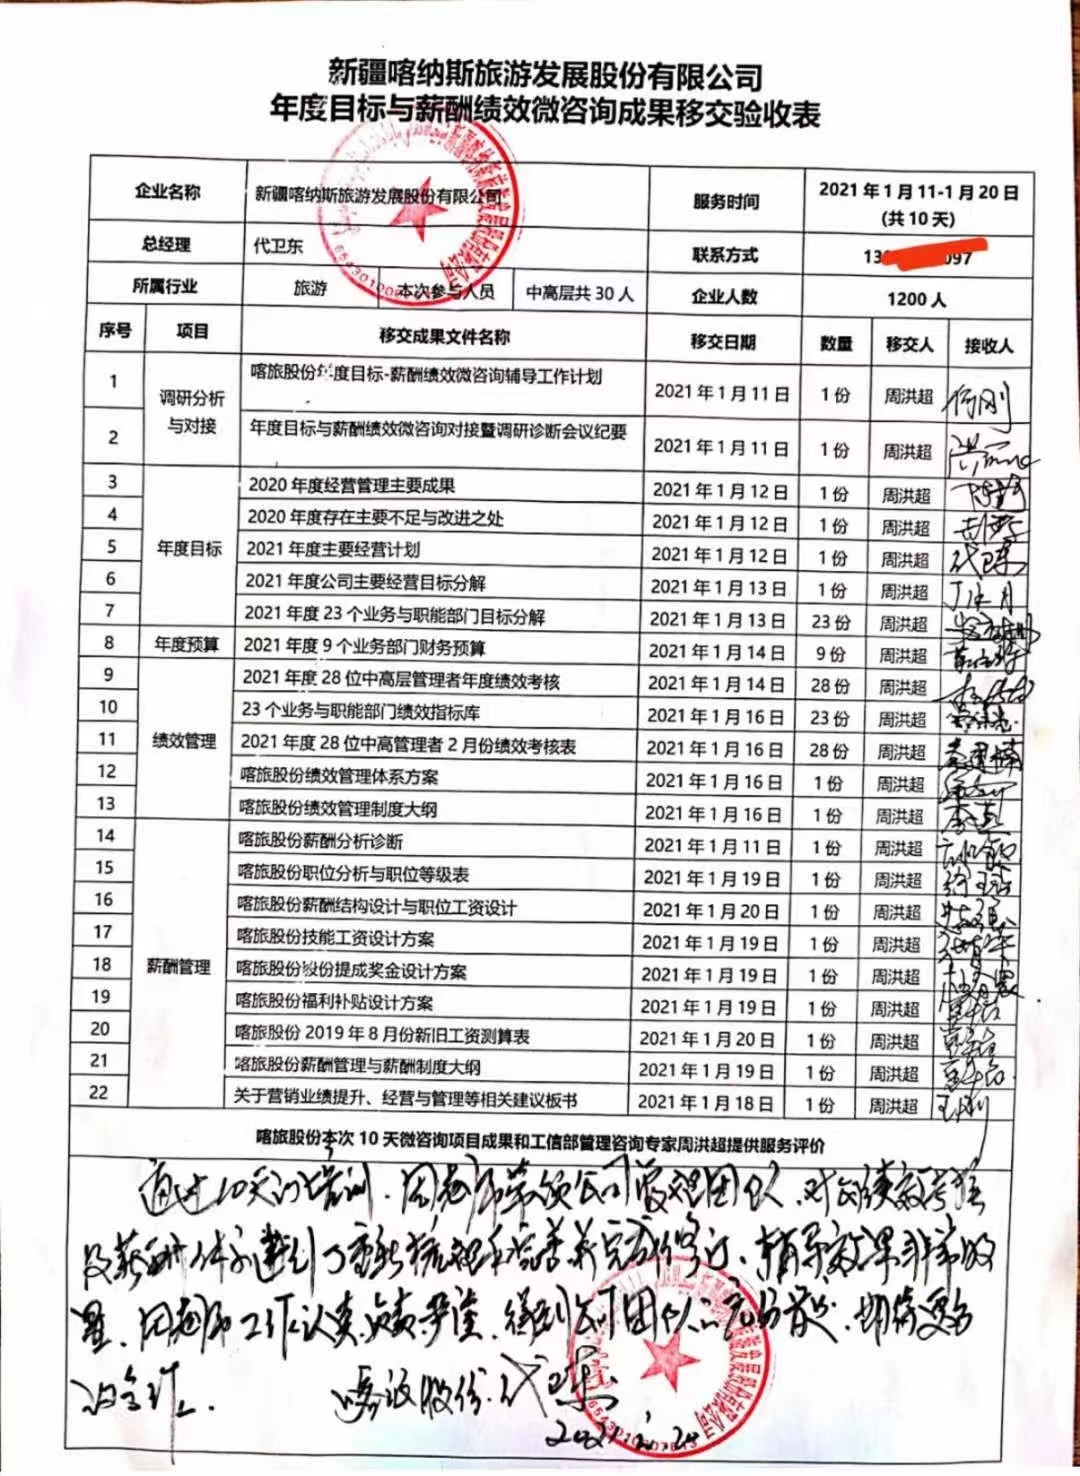 新疆喀纳斯旅游发展股份有限公司
年度目标与薪酬绩效微咨询成果移交验收表
企业名称 新疆喀纳斯旅游发展股份有限公司 服务时间 2021年1月11-1月20日
(共10天)
总经理 代卫东 联系方式 13 097
所属行业 旅游 本次参与人员 中高层共30人 企业人数 1200人
序号 项目 移交成果文件名称 移交日期 数量 移交人 接收人
1 调研分析与对接 喀旅股份年度目标-薪酬绩效微咨询辅导工作计划 2021年1月11日 1份 周洪超 何刚
2 年度目标与薪酬绩效微咨询对接暨调研诊断会议纪要 2021年1月11日 1份 周洪超
3 年度目标 2020年度经营管理主要成果 2021年1月12日 1份 周洪超
4 2020年度存在主要不足与改进之处 2021年1月12日 1份 周洪超
5 2021年度主要经营计划 2021年1月12日 1份 周洪超
6 2021年度公司主要经营目标分解 2021年1月13日 1份 周洪超
7 2021年度23个业务与职能部门目标分解 2021年1月13日 23份 周洪超
8 年度预算 2021年度9个业务部门财务预算 2021年1月14日 9份 周洪超
9 绩效管理 2021年度28位中高层管理者年度绩效考核 2021年1月14日 28份 周洪超
10 23个业务与职能部门绩效指标库 2021年1月16日 23份 周洪超
11 2021年度28位中高管理者2月份绩效考核表 2021年1月16日 28份 周洪超
12 喀旅股份绩效管理体系方案 2021年1月16日 1份 周洪超
13 喀旅股份绩效管理制度大纲 2021年1月16日 1份 周洪超
14 薪酬管理 喀旅股份薪酬分析诊断 2021年1月11日 1份 周洪超
15 喀旅股份职位分析与职位等级表 2021年1月19日 1份 周洪超
16 喀旅股份薪酬结构设计与职位工资设计 2021年1月20日 1份 周洪超
17 喀旅股份技能工资设计方案 2021年1月19日 1份 周洪超
18 喀旅股份股份提成奖金设计方案 2021年1月19日 1份 周洪超
19 喀旅股份福利补贴设计方案 2021年1月19日 1份 周洪超
20 喀旅股份2019年8月份新旧工资测算表 2021年1月20日 1份 周洪超
21 喀旅股份薪酬管理与薪酬制度大纲 2021年1月19日 1份 周洪超
22 关于营销业绩提升、经营与管理等相关建议板书 2021年1月18日 1份 周洪超
喀旅股份本次10天微咨询项目成果和工信部管理咨询专家周洪超提供服务评价
通过10天的培训,周老师带领公司管理团队,对绩效考核
及薪酬体系进行了重新梳理和完善并完成修订,辅导效果非常明
显,周老师工作认真负责严谨,得到公司团队高度肯定,期待更多
的合作。
喀旅股份 代卫东